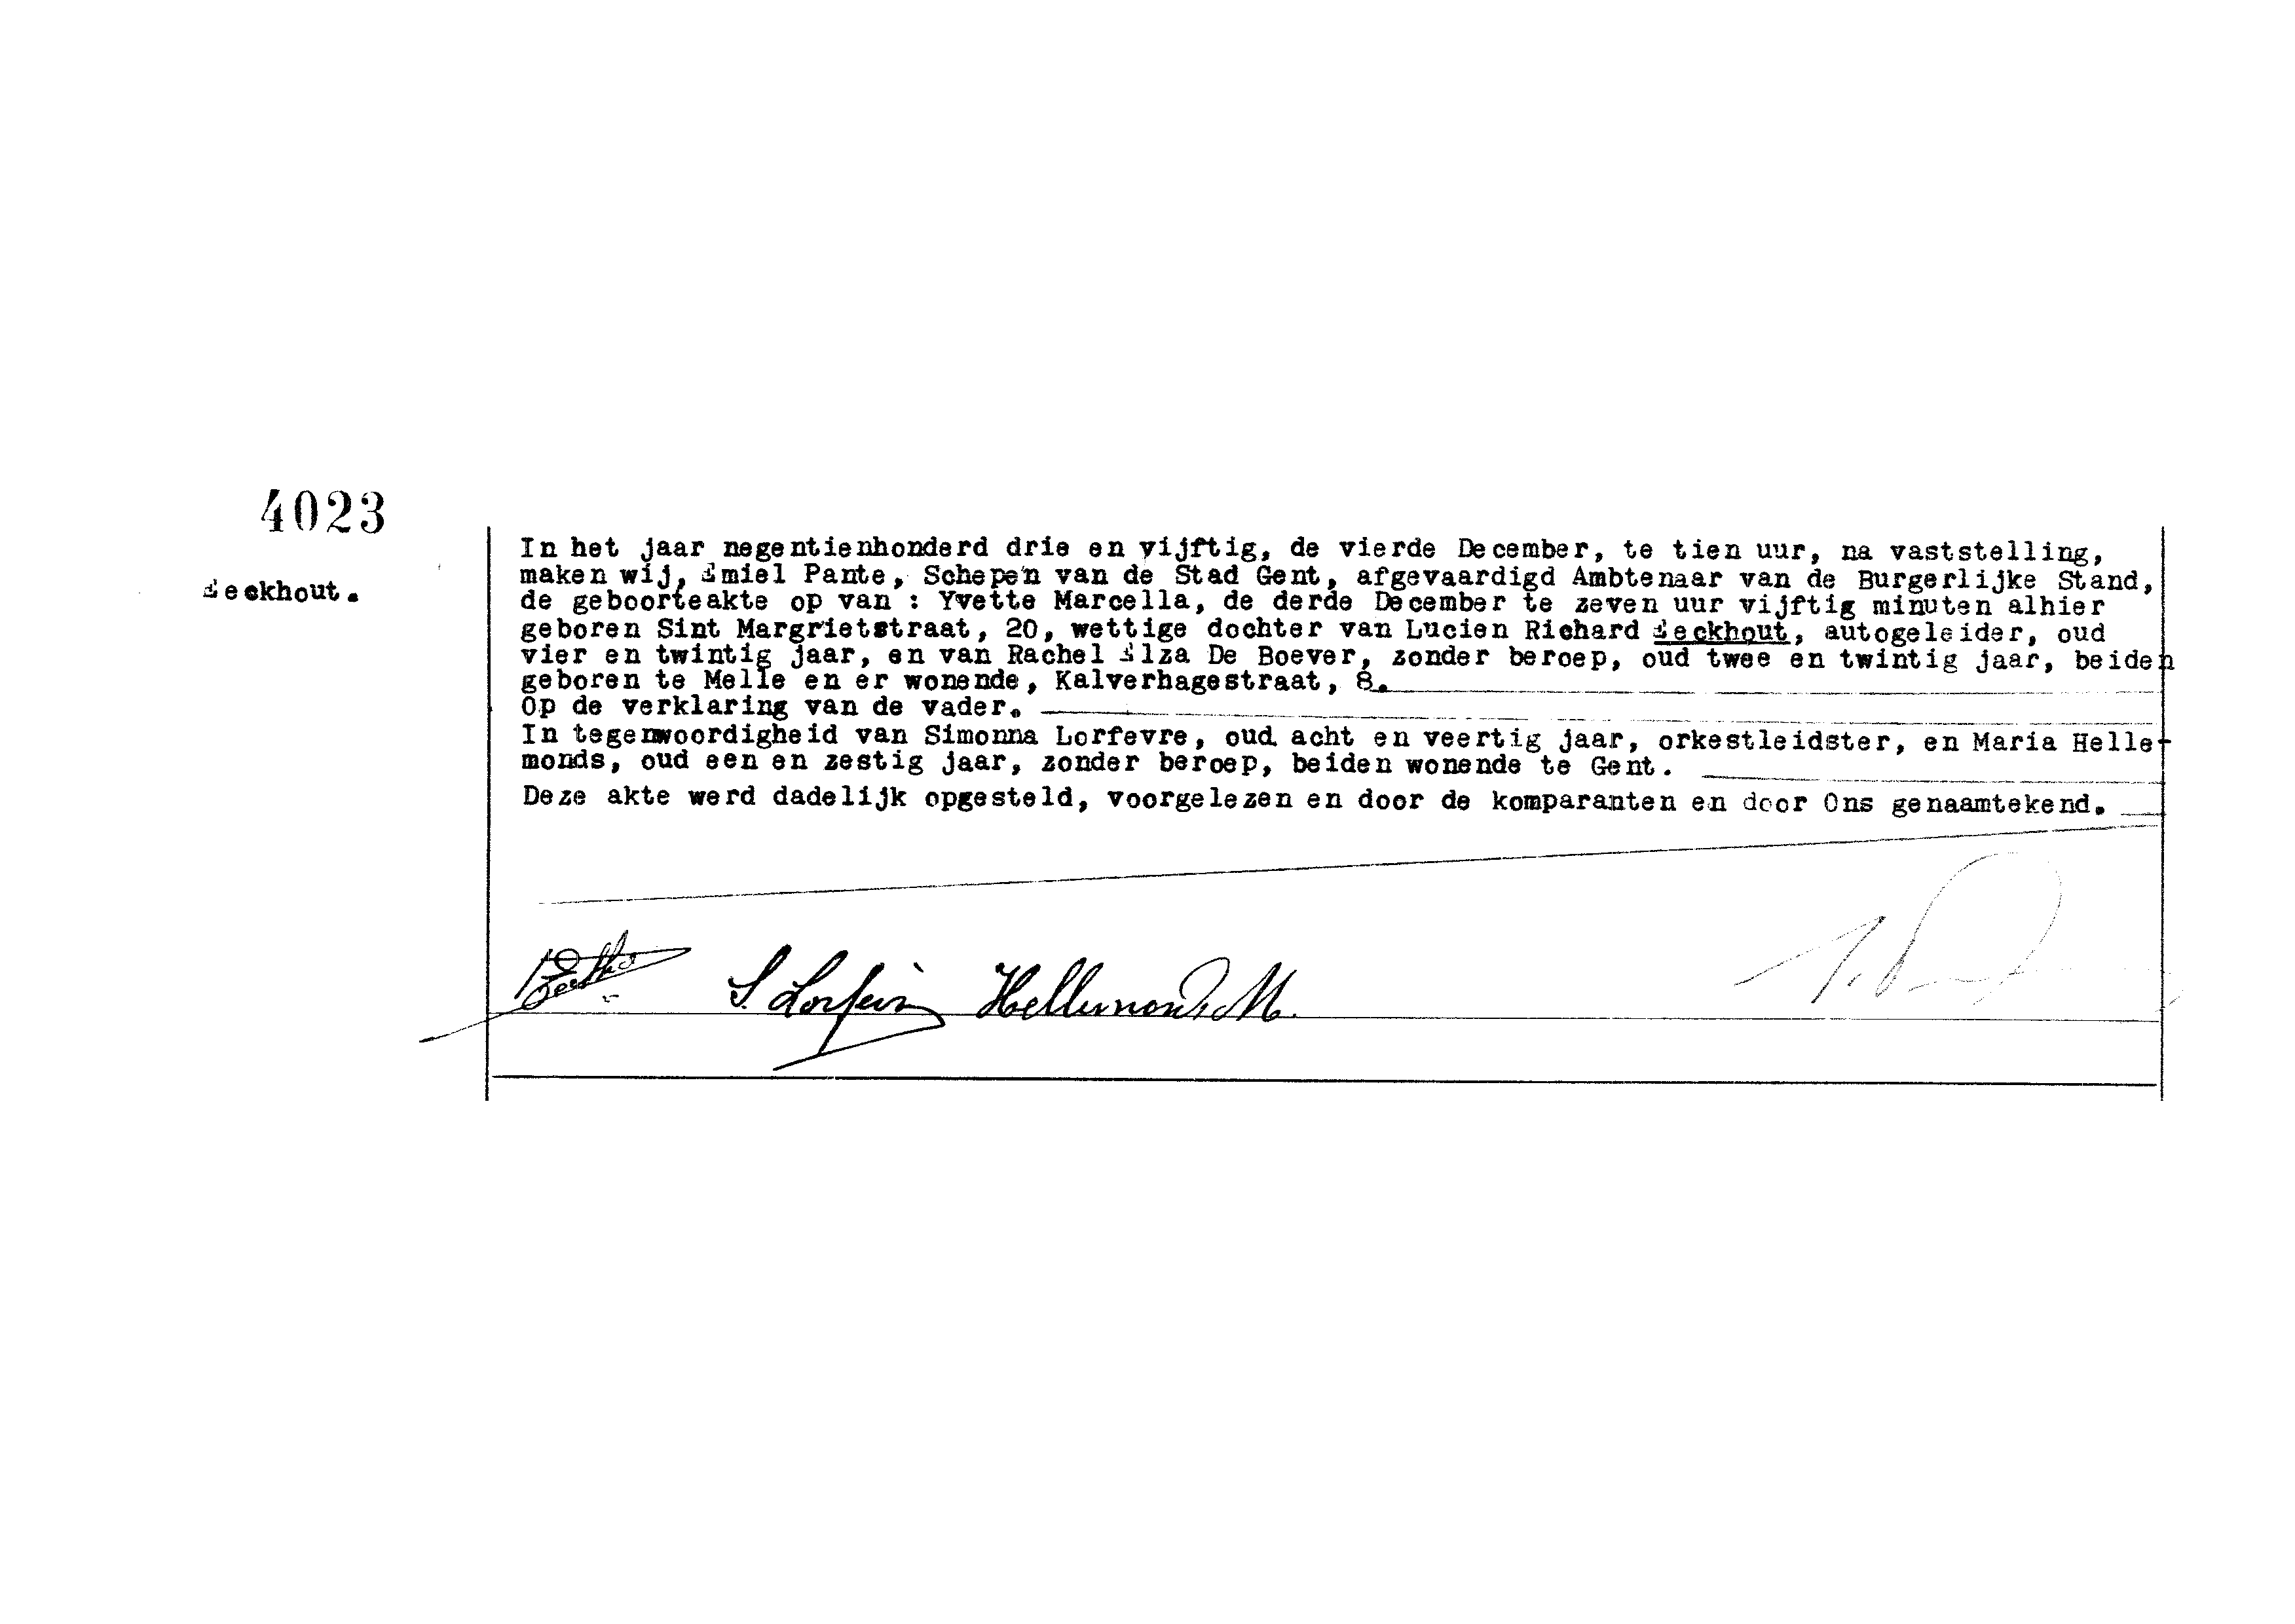 4023
Eeckhout.
In het jaar negentienhonderd drie en vijftig, de vierde December, te tien uur, na vaststelling,
maken wij, Emiel Pante, Schepen van de Stad Gent, afgevaardigd Ambtenaar van de Burgerlijke Stand,
de geboorteakte op van : Yvette Marcella, de derde December te zeven uur vijftig minuten alhier
geboren Sint Margrietstraat, 20, wettige dochter van Lucien Richard Eeckhout, autogeleider, oud
vier en twintig jaar, en van Rachel Elza De Boever, zonder beroep, oud twee en twintig jaar, beiden
geboren te Melle en er wonende, Kalverhagestraat, 8.
Op de verklaring van de vader.
In tegenwoordigheid van Simonna Lorfevre, oud acht en veertig jaar, orkestleidster, en Maria Helle-
monds, oud een en zestig jaar, zonder beroep, beiden wonende te Gent.
Deze akte werd dadelijk opgesteld, voorgelezen en door de komparanten en door Ons genaamtekend.
Hellemonds M.